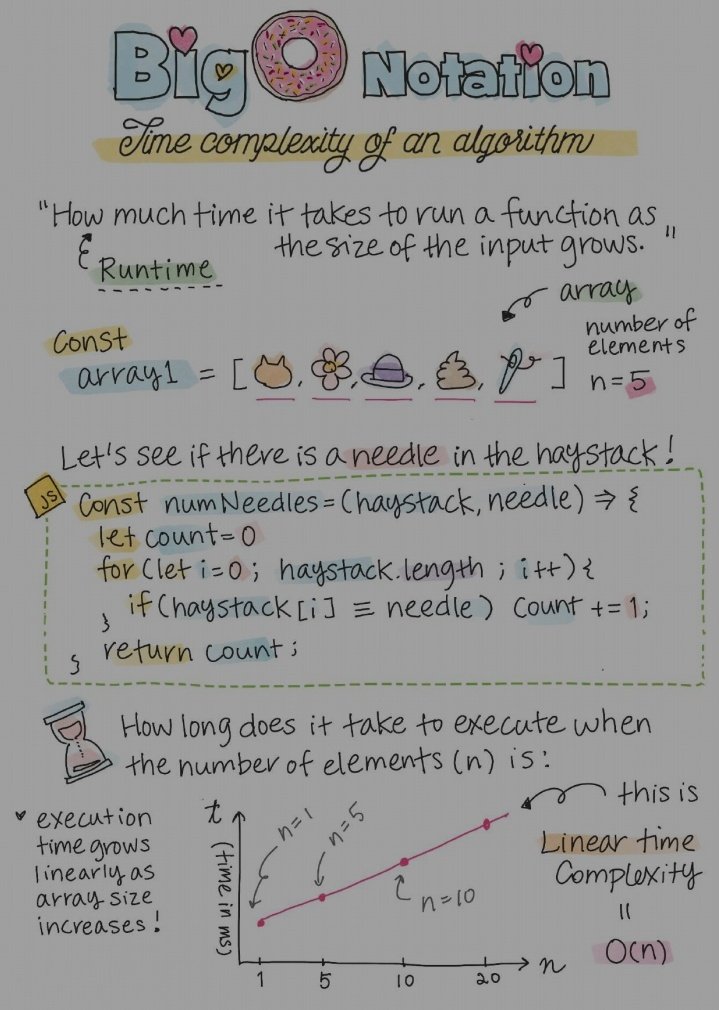 Big O Notation
Time complexity of an algorithm
"How much time it takes to run a function as
the size of the input grows."
Runtime
array
Const
array1 = [ , , , , ]
number of
elements
n=5
Let's see if there is a needle in the haystack!
JS
Const numNeedles=(haystack,needle) ⇒ {
let count=0
for(let i=0; haystack.length ; i++){
if(haystack[i] ≡ needle) Count +=1;
}
return count;
}
How long does it take to execute when
the number of elements (n) is:
this is
Linear time
Complexity
=
O(n)
♥ execution
time grows
linearly as
array size
increases!
t
(time in ms)
n=1
n=5
n=10
1 5 10 20 n